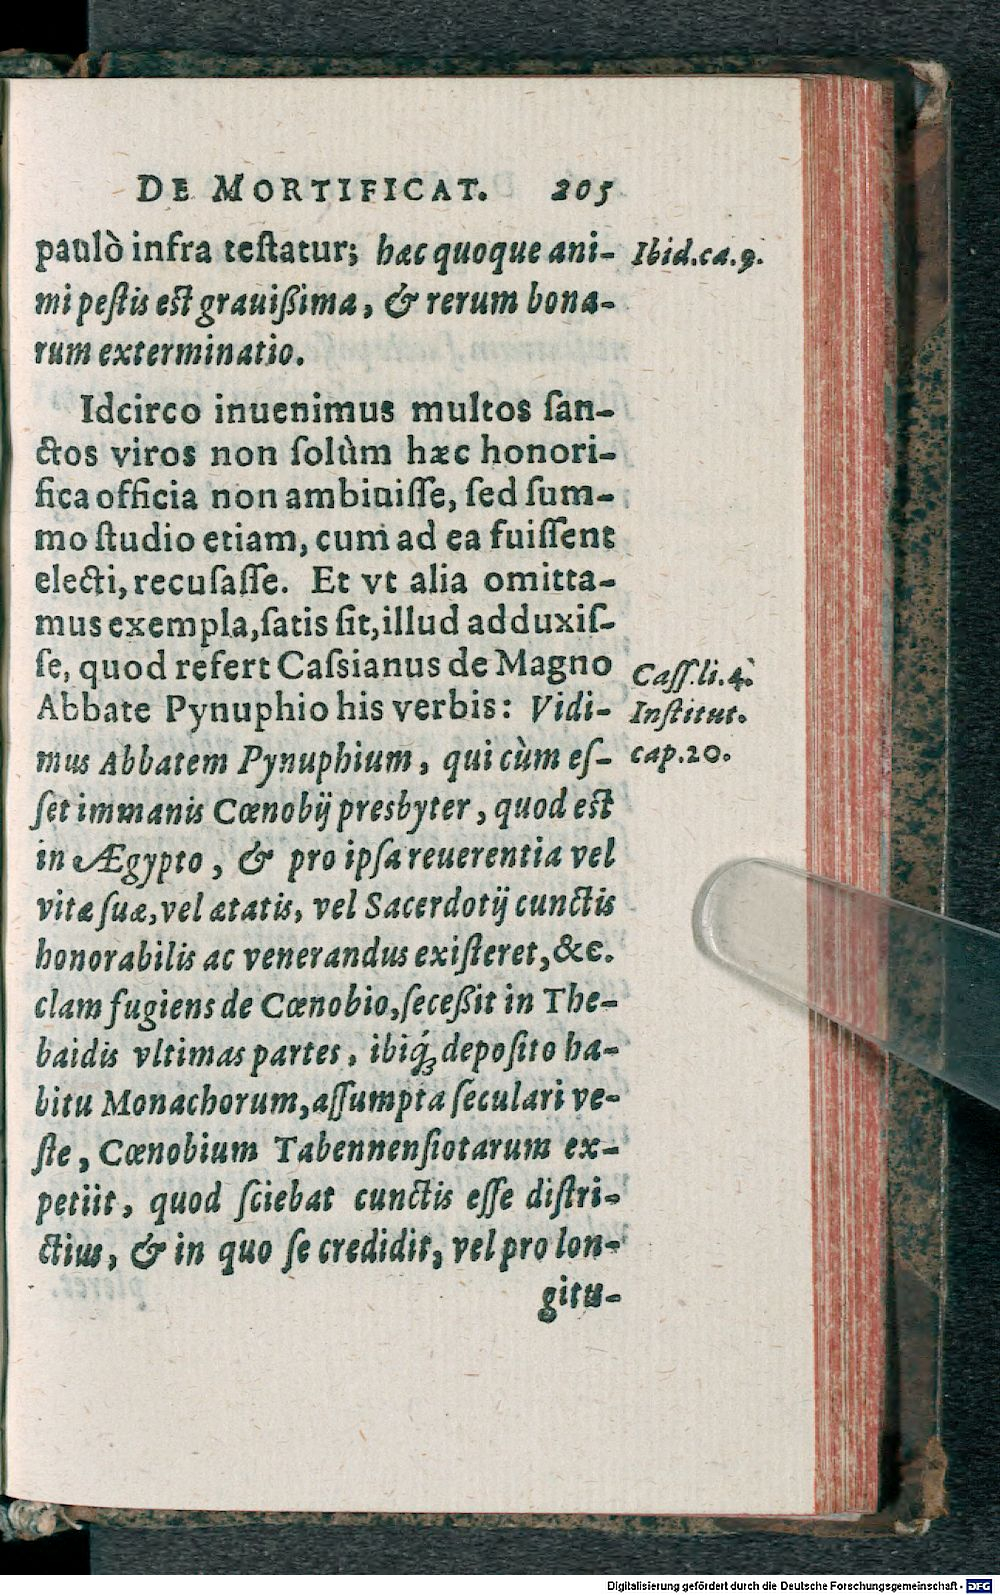 DE MORTIFICAT. 205
paulò infra teſtatur; hæc quoque ani- Ibid.ca.9.
mi peſtis eſt grauißima, & rerum bona-
rum exterminatio.
Idcirco inuenimus multos ſan-
ctos viros non ſolùm hæc honori-
fica officia non ambiuiſſe, ſed ſum-
mo ſtudio etiam, cum ad ea fuiſſent
electi, recuſaſſe. Et vt alia omitta-
mus exempla, ſatis ſit, illud adduxiſ-
ſe, quod refert Caſsianus de Magno Caſſ.li.4.
Abbate Pynuphio his verbis: Vidi- Inſtitut.
mus Abbatem Pynuphium, qui cùm eſ- cap.20.
ſet immanis Cœnobij presbyter, quod eſt
in Ægypto, & pro ipſa reuerentia vel
vitæ ſuæ, vel ætatis, vel Sacerdotij cunctis
honorabilis ac venerandus exiſteret, &c.
clam fugiens de Cœnobio, ſeceßit in The-
baidis vltimas partes, ibiq́; depoſito ha-
bitu Monachorum, aſſumpta ſeculari ve-
ſte, Cœnobium Tabennenſiotarum ex-
petiit, quod ſciebat cunctis eſſe diſtri-
ctius, & in quo ſe credidit, vel pro lon-
gitu-
Digitalisierung gefördert durch die Deutsche Forschungsgemeinschaft - DFG